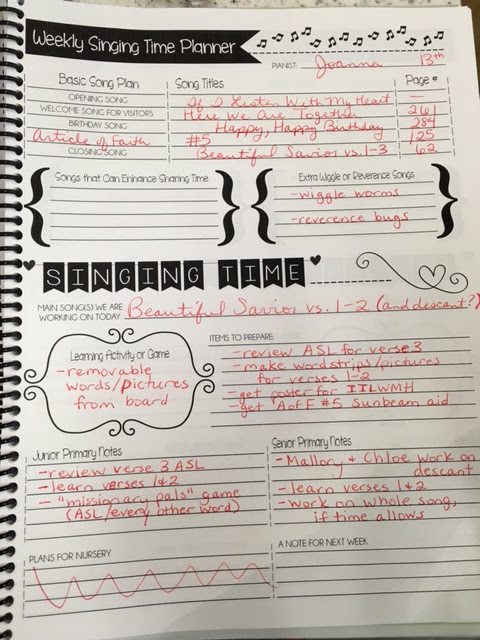 Weekly Singing Time Planner
PIANIST: Joanna 13th
Basic Song Plan Song Titles Page #
OPENING SONG If I Listen With My Heart —
WELCOME SONG FOR VISITORS Here We Are Together 261
BIRTHDAY SONG Happy, Happy Birthday 284
Article of Faith #5 125
CLOSING SONG Beautiful Savior vs. 1-3 62
Songs that Can Enhance Sharing Time
Extra Wiggle or Reverence Songs
- wiggle worms
- reverence bugs
SINGING TIME
MAIN SONG(S) WE ARE WORKING ON TODAY Beautiful Savior vs. 1-2 (and descant?)
Learning Activity or Game
- removable
words/pictures
from board
ITEMS TO PREPARE:
- review ASL for verse 3
- make word strips/pictures
for verses 1-2
- get poster for IILWMH
- get AofF #5 Sunbeam aid
Junior Primary Notes
- review verse 3 ASL
- learn verses 1&2
- "missionary pals" game
(ASL/every other word)
Senior Primary Notes
- Mallory & Chloe work on
descant
- learn verses 1&2
- work on whole song,
if time allows
PLANS FOR NURSERY
A NOTE FOR NEXT WEEK